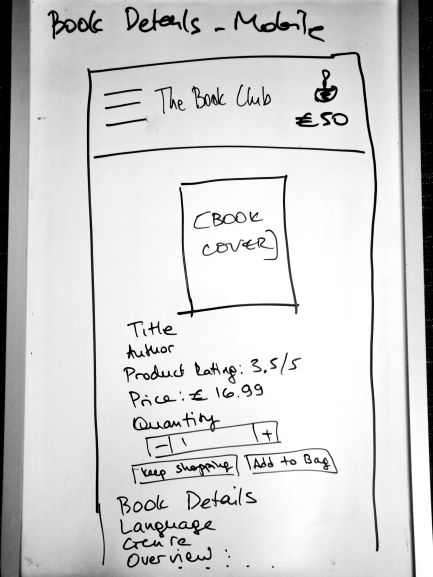 Book Details - Mobile
The Book Club
€50
[BOOK
COVER]
Title
Author
Product Rating: 3.5/5
Price: € 16.99
Quantity
- 1 +
Keep shopping Add to Bag
Book Details
Language
Genre
Overview : . . .